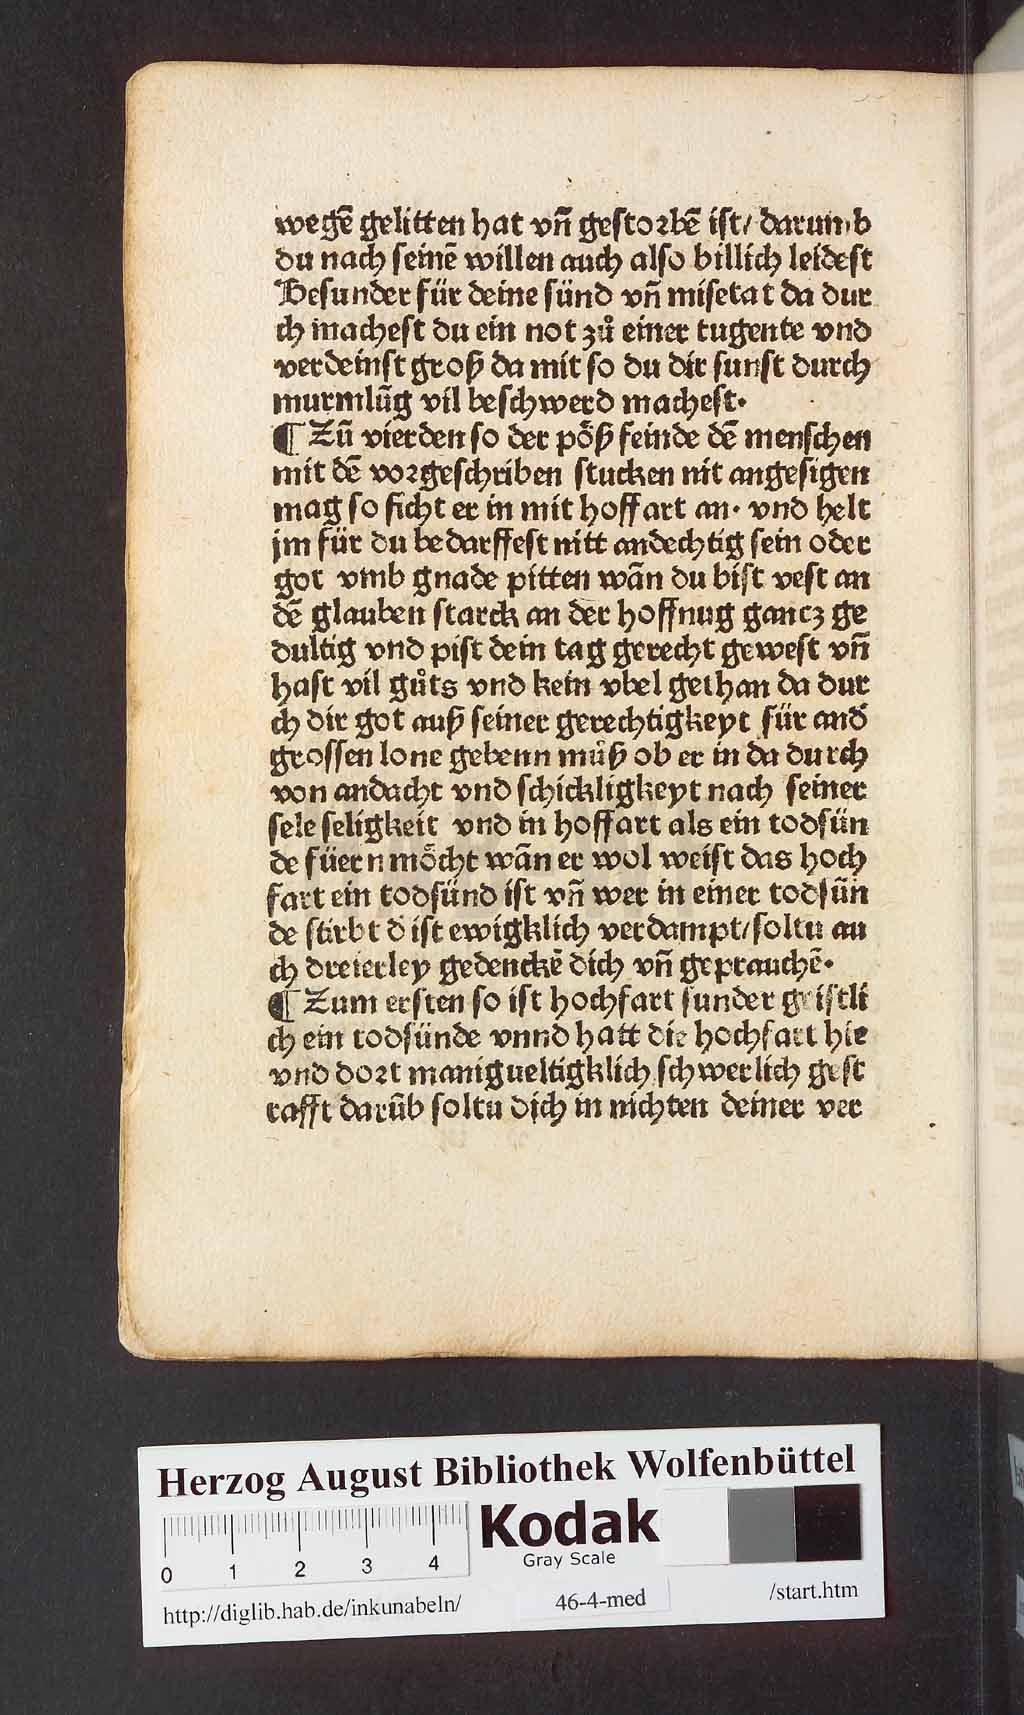 wegē gelitten hat vn̄ gestorbē ist/ darumb
du nach seinē willen auch also billich leidest
Besunder für deine sünd vn̄ misetat da dur
ch machest du ein not zů einer tugente vnd
verdeinst groß da mit so du dir sunst durch
murmlūg vil beschwerd machest·
¶ Zū vierden so der pöß feinde dē menschen
mit dē vorgeschriben stucken nit angesigen
mag so ficht er in mit hoffart an· vnd helt
jm für du bedarffest nitt andechtig sein oder
got vmb gnade pitten wān du bist vest an
dē glauben starck an der hoffnug gancz ge
dultig vnd pist dein tag gerecht gewest vn̄
hast vil gůts vnd kein vbel gethan da dur
ch dir got auß seiner gerechtigkeyt für and̕
grossen lone gebenn můß ob er in da durch
von andacht vnd schickligkeyt nach seiner
sele seligkeit vnd in hoffart als ein todsün
de füern möcht wān er wol weist das hoch
fart ein todsünd ist vn̄ wer in einer todsūn
de stirbt d̕ ist ewigklich verdampt/soltu au
ch dreierley gedenckē dich vn̄ geprauchē·
¶ Zum ersten so ist hochfart sunder geistli
ch ein todsünde vnnd hatt die hochfart hie
vnd dort manigueltigklich schwerlich gest
rafft darūb soltu dich in nichten deiner ver
Herzog August Bibliothek Wolfenbüttel
Kodak
Gray Scale
0 1 2 3 4
http://diglib.hab.de/inkunabeln/ 46-4-med /start.htm